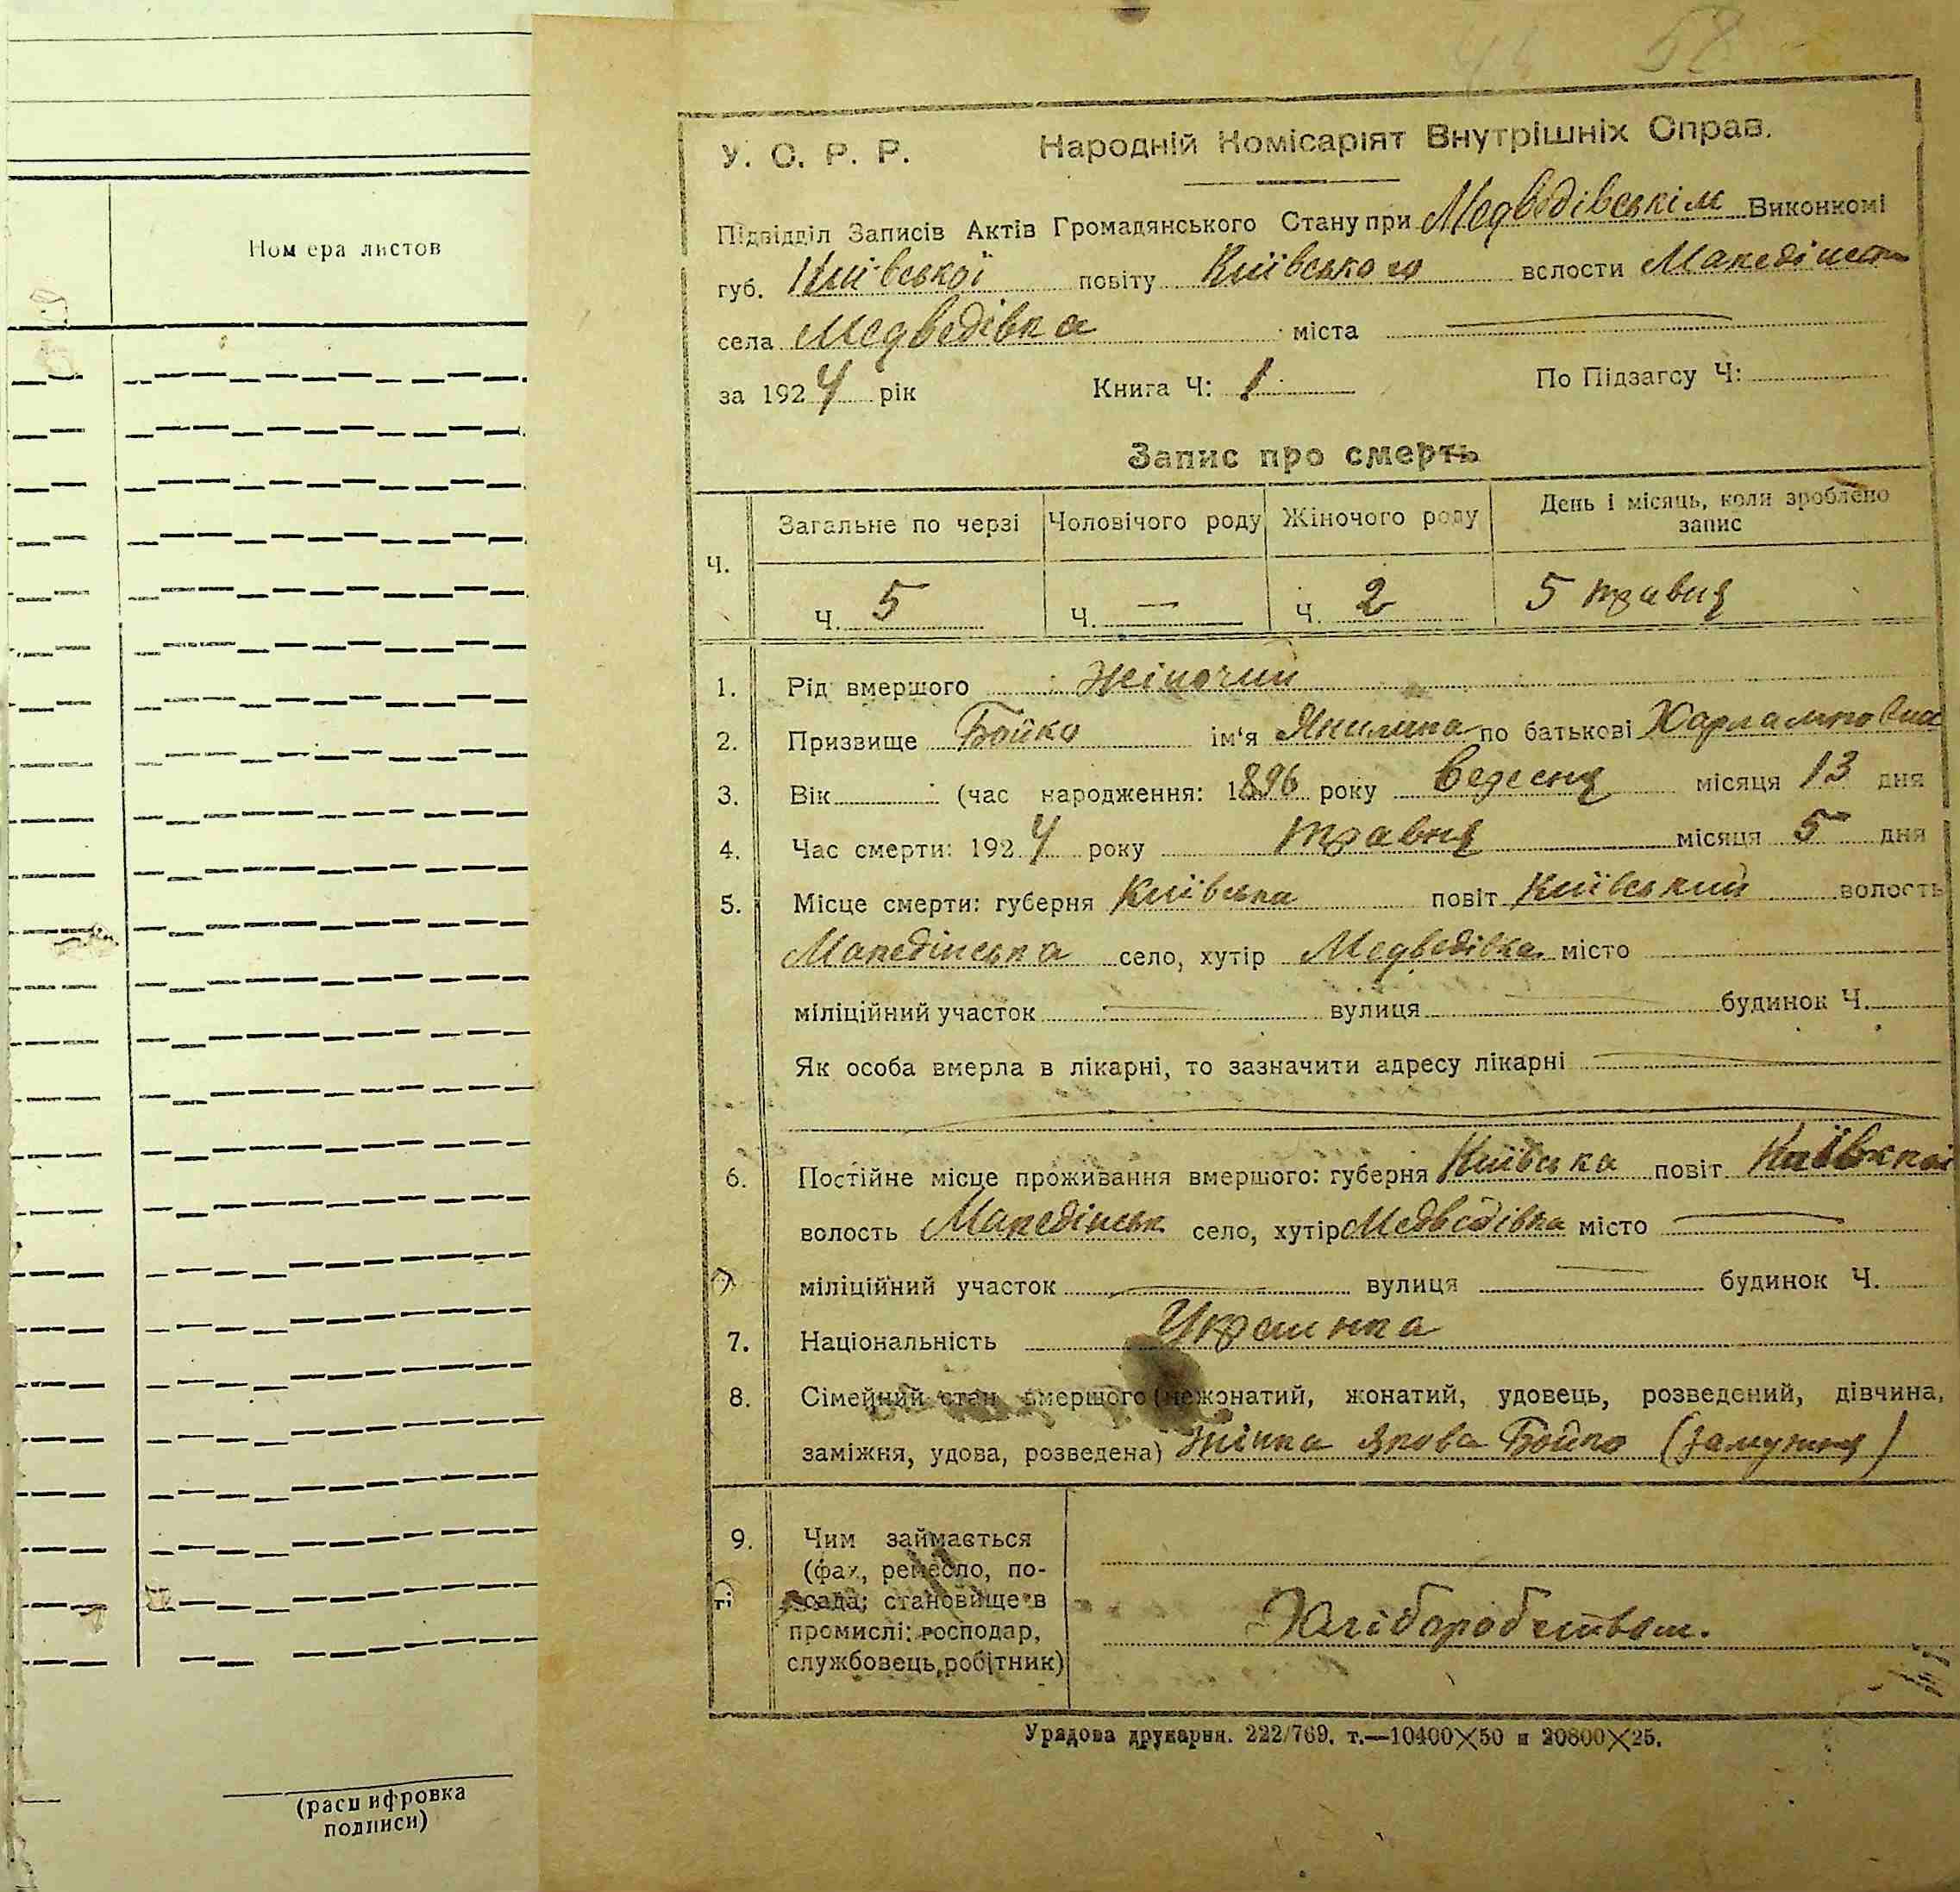 58
У. С. Р. Р. Народній Комісаріят Внутрішніх Справ.
Підвідділ Записів Актів Громадянського Стану при Медведівськім Виконкомі
губ. Київської повіту Київського волости
села Медведівка міста —
за 1924 рік Книга Ч: 1 По Підзагсу Ч:
Запис про смерть
Ч. Загальне по черзі Чоловічого роду Жіночого роду День і місяць, коли зроблено запис
Ч. 5 Ч. — Ч. 2 5 травня
1. Рід вмершого Жіночий
2. Призвище Бойко ім'я Якилина по батькові Харламповна
3. Вік (час народження: 1896 року Вересня місяця 13 дня
4. Час смерти: 1924 року травня місяця 5 дня
5. Місце смерти: губерня Київська повіт Київський волость
Македінська село, хутір Медведівка місто
міліційний участок — вулиця — будинок Ч.
Як особа вмерла в лікарні, то зазначити адресу лікарні —
6. Постійне місце проживання вмершого: губерня Київська повіт
волость Македінськ село, хутір Медведівка місто —
міліційний участок — вулиця — будинок Ч.
7. Національність Украинка
8. Сімейний стан вмершого (нежонатий, жонатий, удовець, розведений, дівчина,
заміжня, удова, розведена) Жінка Якова Бойко (замужня)
9. Чим займається
(фах, ремесло, по-
сада; становище в
промислі: господар,
службовець, робітник)
Хліборобством.
Урядова друкарня. 222/769. т.—10400X50 и 20800X25.
Номера листов
(расшифровка
подписи)